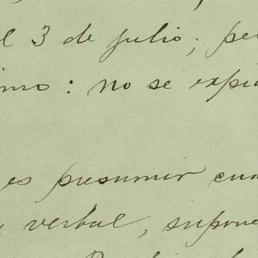 l 3 de julio; pe
imo: no se expi
es presumir cua
verbal, supone